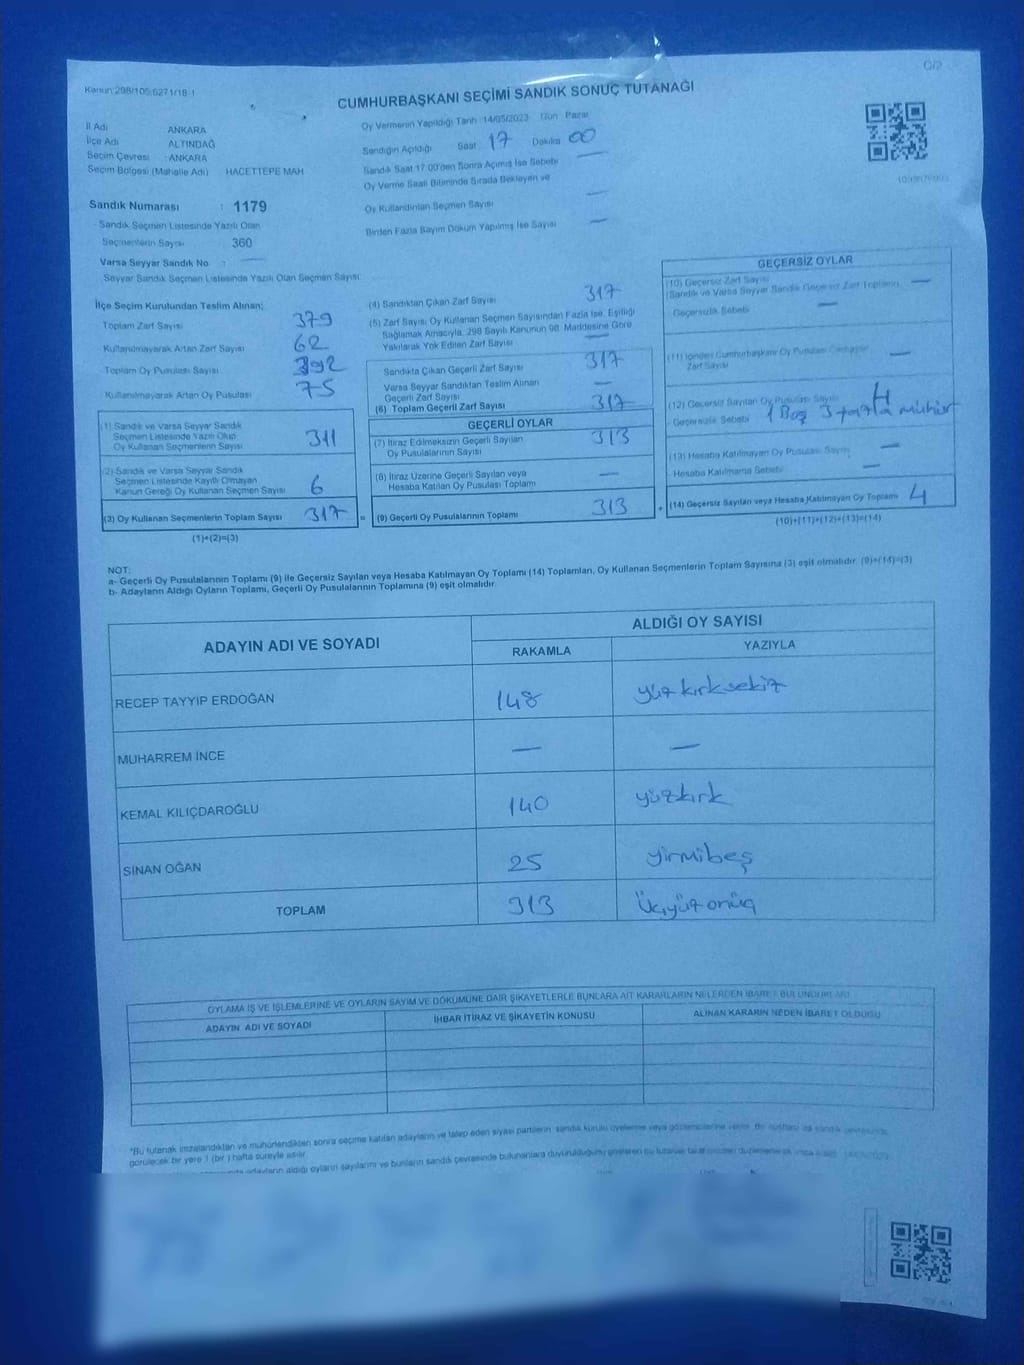 Kanun:298/105;6271/18-1
CUMHURBAŞKANI SEÇİMİ SANDIK SONUÇ TUTANAĞI
İl Adı ANKARA
İlçe Adı ALTINDAĞ
Seçim Çevresi : ANKARA
Seçim Bölgesi (Mahalle Adı) HACETTEPE MAH
Sandık Numarası : 1179
Sandık Seçmen Listesinde Yazılı Olan
Seçmenlerin Sayısı 360
Varsa Seyyar Sandık No : —
Seyyar Sandık Seçmen Listesinde Yazılı Olan Seçmen Sayısı:
Oy Vermenin Yapıldığı Tarih 14/05/2023 Gün Pazar
Sandığın Açıldığı Saat 17 Dakika 00
Sandık Saat 17:00'den Sonra Açımış İse Sebebi —
Oy Verme Saati Bitiminde Sırada Bekleyen ve
Oy Kullandırılan Seçmen Sayısı —
Birden Fazla Sayım Döküm Yapılmış İse Sayısı —
İlçe Seçim Kurulundan Teslim Alınan;
Toplam Zarf Sayısı 379
Kullanılmayarak Artan Zarf Sayısı 62
Toplam Oy Pusulası Sayısı 392
Kullanılmayarak Artan Oy Pusulası 75
(1) Sandık ve Varsa Seyyar Sandık
Seçmen Listesinde Yazılı Olup
Oy Kullanan Seçmenlerin Sayısı 311
(2) Sandık ve Varsa Seyyar Sandık
Seçmen Listesinde Kayıtlı Olmayan
Kanun Gereği Oy Kullanan Seçmen Sayısı 6
(3) Oy Kullanan Seçmenlerin Toplam Sayısı 317
(1)+(2)=(3)
(4) Sandıktan Çıkan Zarf Sayısı 317
(5) Zarf Sayısı Oy Kullanan Seçmen Sayısından Fazla İse, Eşitliği
Sağlamak Amacıyla, 298 Sayılı Kanunun 98. Maddesine Göre
Yakılarak Yok Edilen Zarf Sayısı —
Sandıkta Çıkan Geçerli Zarf Sayısı 317
Varsa Seyyar Sandıktan Teslim Alınan
Geçerli Zarf Sayısı —
(6) Toplam Geçerli Zarf Sayısı 317
GEÇERLİ OYLAR
(7) İtiraz Edilmeksizin Geçerli Sayılan
Oy Pusulalarının Sayısı 313
(8) İtiraz Üzerine Geçerli Sayılan veya
Hesaba Katılan Oy Pusulası Toplamı —
= (9) Geçerli Oy Pusulalarının Toplamı 313
GEÇERSİZ OYLAR
(10) Geçersiz Zarf Sayısı
(Sandık ve Varsa Seyyar Sandık Geçersiz Zarf Toplamı) —
Geçersizlik Sebebi —
Zarf Sayısı —
(12) Geçersiz Sayılan Oy Pusulası Sayısı 4
Geçersizlik Sebebi 1 Boş 3 fazla mühür
(13) Hesaba Katılmayan Oy Pusulası Sayısı —
Hesaba Katılmama Sebebi —
+ (14) Geçersiz Sayılan veya Hesaba Katılmayan Oy Toplamı 4
(10)+(11)+(12)+(13)=(14)
NOT:
a- Geçerli Oy Pusulalarının Toplamı (9) ile Geçersiz Sayılan veya Hesaba Katılmayan Oy Toplamı (14) Toplamları, Oy Kullanan Seçmenlerin Toplam Sayısına (3) eşit olmalıdır. (9)+(14)=(3)
b- Adayların Aldığı Oyların Toplamı, Geçerli Oy Pusulalarının Toplamına (9) eşit olmalıdır.
ADAYIN ADI VE SOYADI
ALDIĞI OY SAYISI
RAKAMLA YAZIYLA
RECEP TAYYİP ERDOĞAN 148 yüz kırksekiz
MUHARREM İNCE — —
KEMAL KILIÇDAROĞLU 140 yüzkırk
SİNAN OĞAN 25 yirmibeş
TOPLAM 313 üçyüz onüç
OYLAMA İŞ VE İŞLEMLERİNE VE OYLARIN SAYIM VE DÖKÜMÜNE DAİR ŞİKAYETLERLE BUNLARA AİT KARARLARIN NELERDEN İBARET BULUNDUKLARI
ADAYIN ADI VE SOYADI İHBAR İTİRAZ VE ŞİKAYETİN KONUSU ALINAN KARARIN NEDEN İBARET OLDUĞU
*Bu tutanak imzalandıktan ve mühürlendikten sonra seçime katılan adayların ve talep eden siyasi partilerin sandık kurulu üyelerine veya gözlemcilerine verilir. Bir nüshası da sandık çevresinde
görülecek bir yere 1 (bir ) hafta süreyle asılır.
adayların aldığı oyların sayılarını ve bunların sandık çevresinde bulunanlara duyurulduğunu gösteren bu tutanak